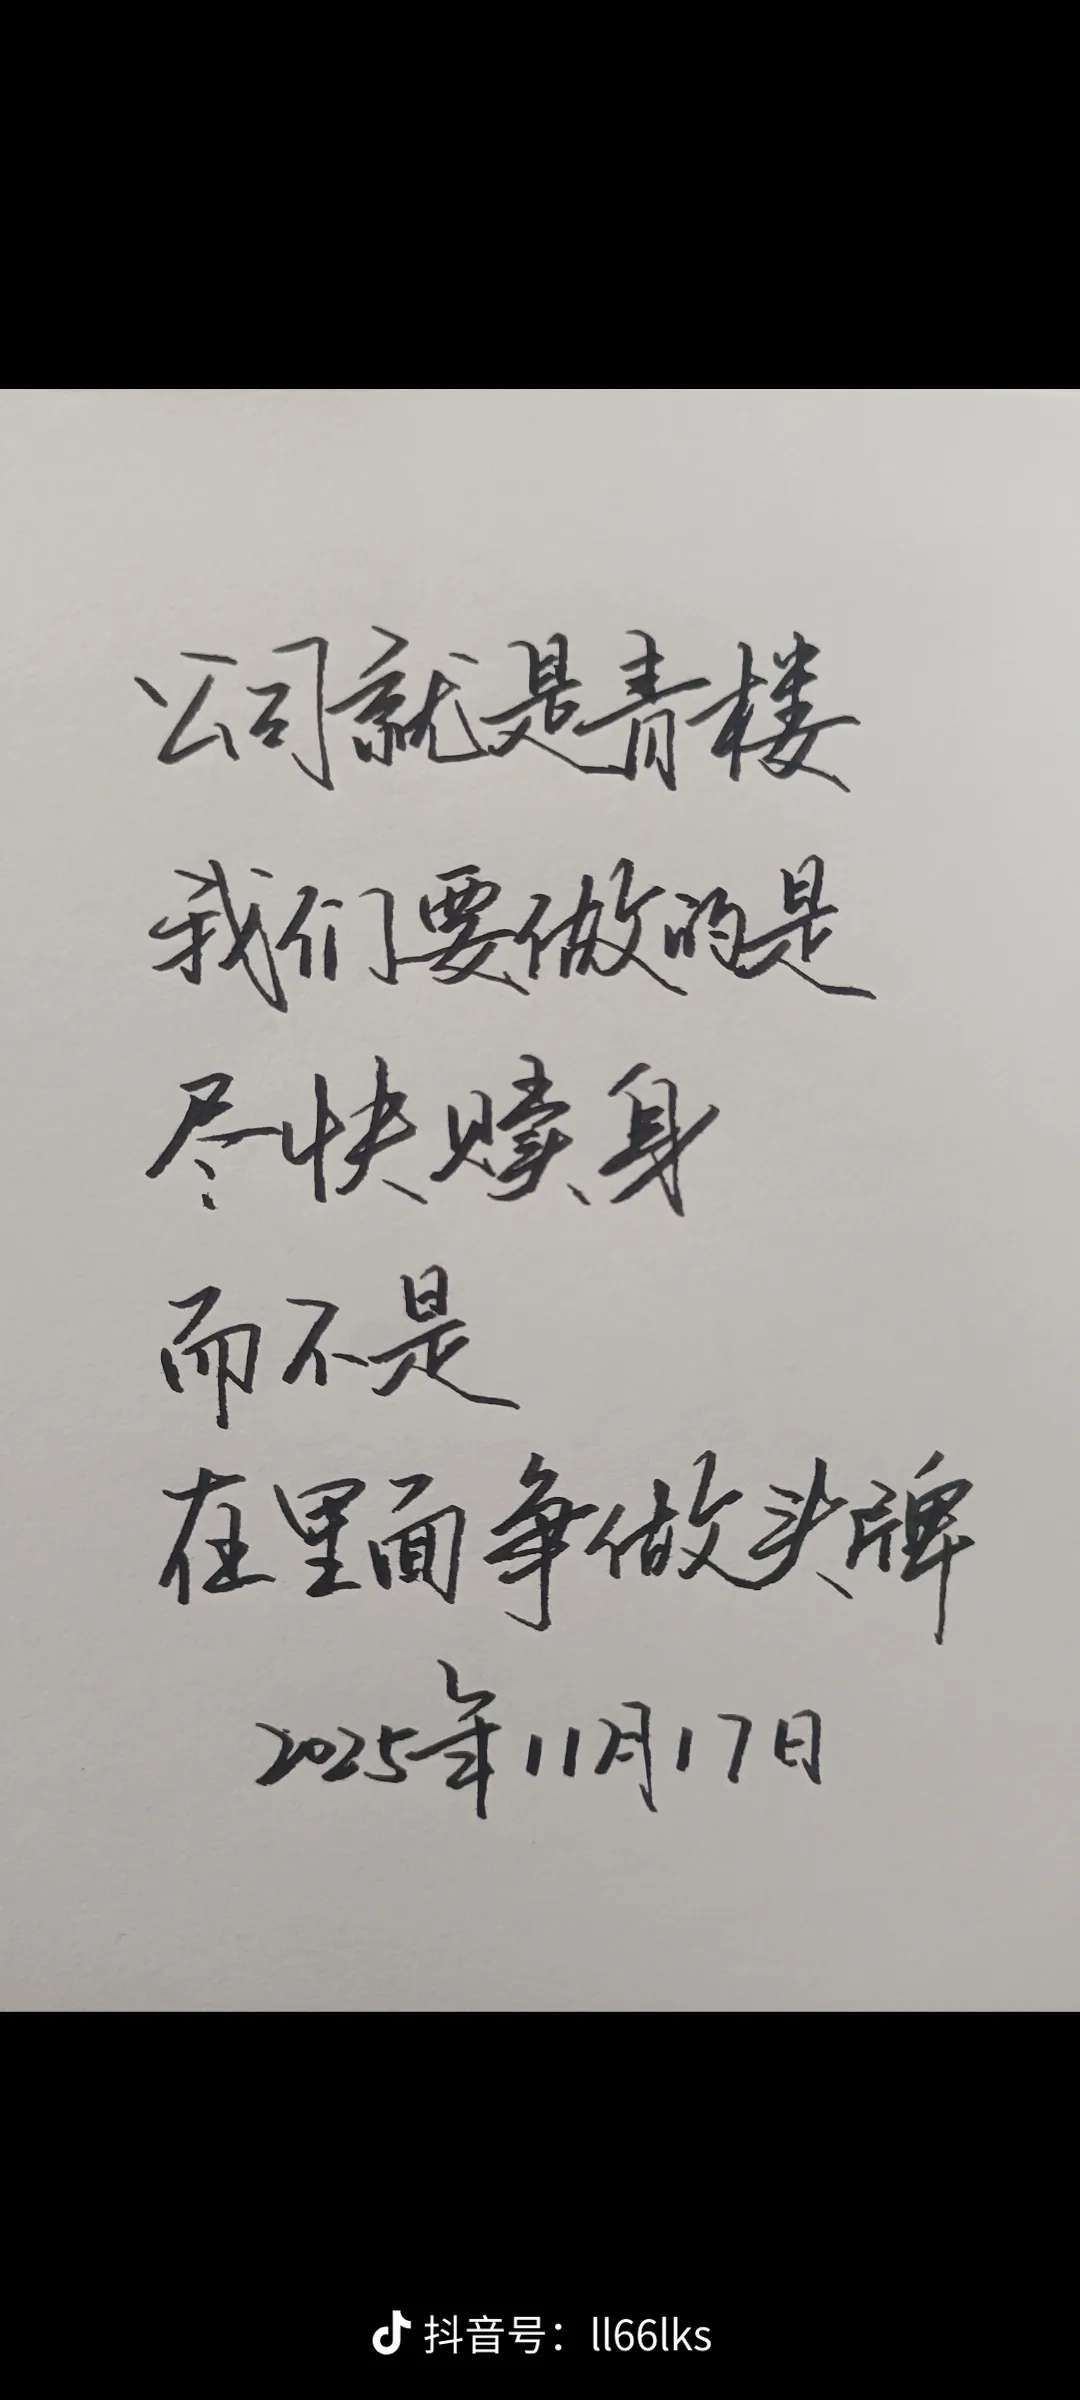 公司就是青楼
我们要做的是
尽快赎身
而不是
在里面争做头牌
2025年11月17日
抖音号：ll66lks